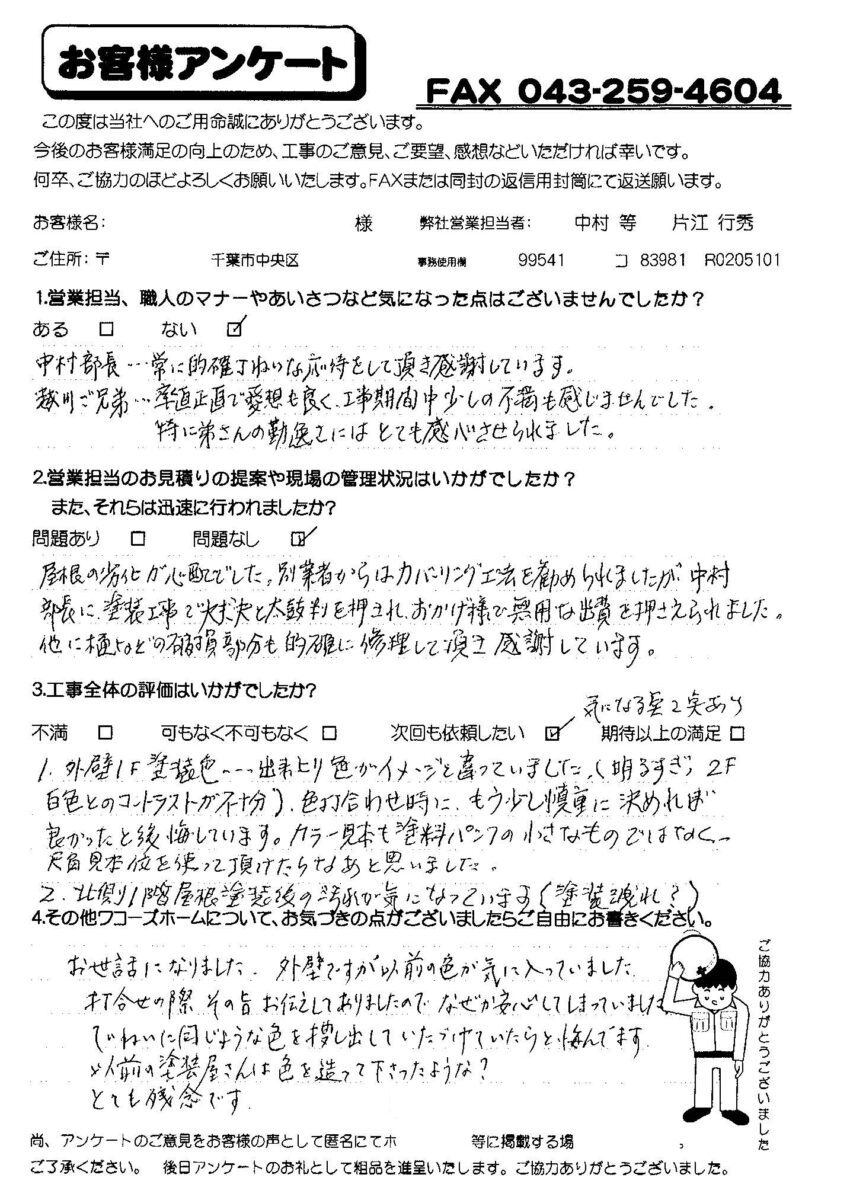 お客様アンケート
FAX 043-259-4604
この度は当社へのご用命誠にありがとうございます。
今後のお客様満足の向上のため、工事のご意見、ご要望、感想などいただければ幸いです。
何卒、ご協力のほどよろしくお願いいたします。FAXまたは同封の返信用封筒にて返送願います。
お客様名: 様 弊社営業担当者: 中村 等 片江 行秀
ご住所:〒 千葉市中央区 事務使用欄 99541 コ 83981 R0205101
1.営業担当、職人のマナーやあいさつなど気になった点はございませんでしたか?
ある □ ない ☑
中村部長…常に的確丁ねいな応待をして頂き感謝しています。
越川ご兄弟…率直正直で愛想も良く、工事期間中少しの不満も感じませんでした。
特に弟さんの勤勉さにはとても感心させられました。
2.営業担当のお見積りの提案や現場の管理状況はいかがでしたか?
また、それらは迅速に行われましたか?
問題あり □ 問題なし ☑
屋根の劣化が心配でした。別業者からはカバーリング工法を勧められましたが、中村
部長に、塗装工事で大丈夫と太鼓判を押され、おかげ様で無用な出費を押さえられました。
他に樋などの破損部分も的確に修理して頂き感謝しています。
3.工事全体の評価はいかがでしたか?
気になる点2点あり
不満 □ 可もなく不可もなく □ 次回も依頼したい ☑ 期待以上の満足 □
1. 外壁1F塗装色…出来上り色がイメージと違っていました。(明るすぎ、2F
白色とのコントラストが不十分)、色打合わせ時に、もう少し慎重に決めれば
良かったと後悔しています。カラー見本も塗料パンフの小さなものではなく、
尺角見本位を使って頂けたらなあと思いました。
2. 北側1階屋根塗装後の汚れが気になっています(塗装洩れ?)
4.その他ワコーズホームについて、お気づきの点がございましたらご自由にお書きください。
お世話になりました。外壁ですが以前の色が気に入っていました
打合せの際その旨お伝えしてありましたのでなぜか安心してしまっていました
ていねいに同じような色を捜し出していただけていたらと悔んでます
以前の塗装屋さんは色を造って下さったような?
とても残念です
ご協力ありがとうございました
尚、アンケートのご意見をお客様の声として匿名にてホ 等に掲載する場 、
ご了承ください。 後日アンケートのお礼として粗品を進呈いたします。ご協力ありがとうございました。